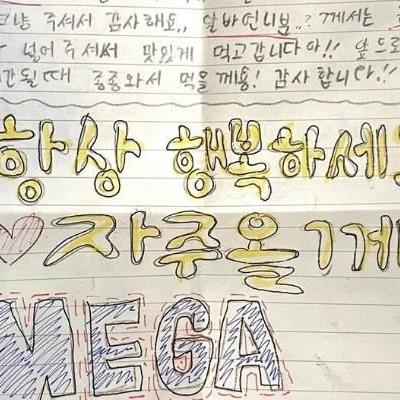 그냥 주셔서 감사해요,, 알바언니분..? 께서는
넣어주셔서 맛있게 먹고갑니다아!! 앞으로
간될때 종종와서 먹을께용! 감사합니다.!!
항상 행복하세
♡자주올1게
MEGA